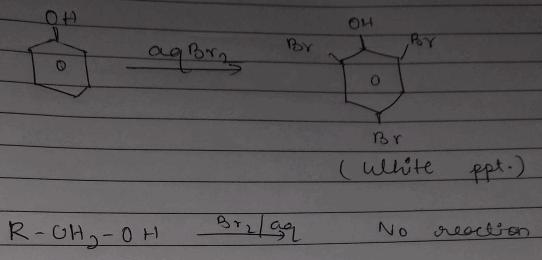 OH
OH
Br
Br
aq Br₂
Br
(White ppt.)
R-CH₂-OH Br₂/aq No reaction